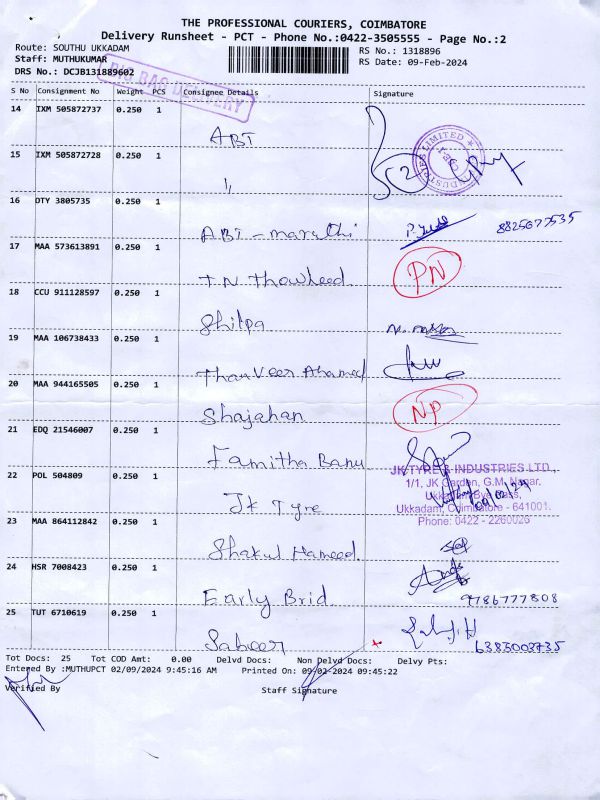 THE PROFESSIONAL COURIERS, COIMBATORE
Delivery Runsheet - PCT - Phone No.:0422-3505555 - Page No.:2
Route: SOUTHU UKKADAM RS No.: 1318896
Staff: MUTHUKUMAR RS Date: 09-Feb-2024
DRS No.: DCJB131889602
BIG BAG DELIVERY
S No Consignment No Weight PCS Consignee Details Signature
14 IXM 505872737 0.250 1
ABT
15 IXM 505872728 0.250 1
INDUSTRIES LIMITED
16 DTY 3805735 0.250 1
ABT - maruthi 8825677535
17 MAA 573613891 0.250 1
TN Thowheed PN
18 CCU 911128597 0.250 1
Shilpa
19 MAA 106738433 0.250 1
ThanVeer Ahamed
20 MAA 944165505 0.250 1
Shajahan NP
21 EDQ 21546007 0.250 1
Famitha Banu
JK TYRE & INDUSTRIES LTD.,
22 POL 504809 0.250 1
1/1, JK Garden, G.M. Nagar,
Ukkadam Bye Pass,
JK Tyre
Ukkadam, Coimbatore - 641001.
Phone: 0422 - 2260026
23 MAA 864112842 0.250 1
Shakul Hameed
24 HSR 7008423 0.250 1
Early Brid 9786777808
25 TUT 6710619 0.250 1
Sabeer 6383003735
Tot Docs: 25 Tot COD Amt: 0.00 Delvd Docs: Non Delvd Docs: Delvy Pts:
Entered By :MUTHUPCT 02/09/2024 9:45:16 AM Printed On: 09-02-2024 09:45:22
Verified By Staff Signature